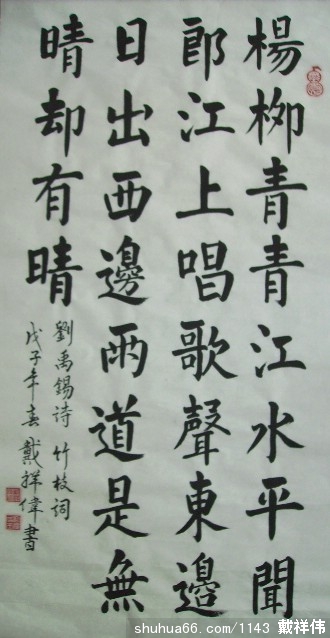 楊柳青青江水平聞
郎江上唱歌聲東邊
日出西邊雨道是無
晴却有晴
劉禹錫詩 竹枝詞
戊子年春 戴祥偉書
shuhua66.com/1143 戴祥伟